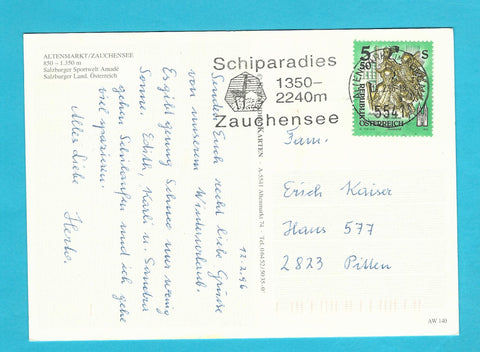 ALTENMARKT/ZAUCHENSEE
850 – 1.350 m
Salzburger Sportwelt Amadé
Salzburger Land, Österreich
Schiparadies
1350–
2240m
Zauchensee
5
S
5541
REPUBLIK
ÖSTERREICH
12.2.96
Senden Euch recht liebe Grüße
von unserem Winterurlaub.
Es gibt genug Schnee nur wenig
Sonne. Edith, Karli u. Sandra
gehen Schilaufen und ich gehe
viel spazieren.
Alles Liebe
Herta.
KARTEN · A-5541 Altenmarkt 74 · Tel.
Fam.
Erich Kaiser
Haus 577
2823 Pitten
AW 140